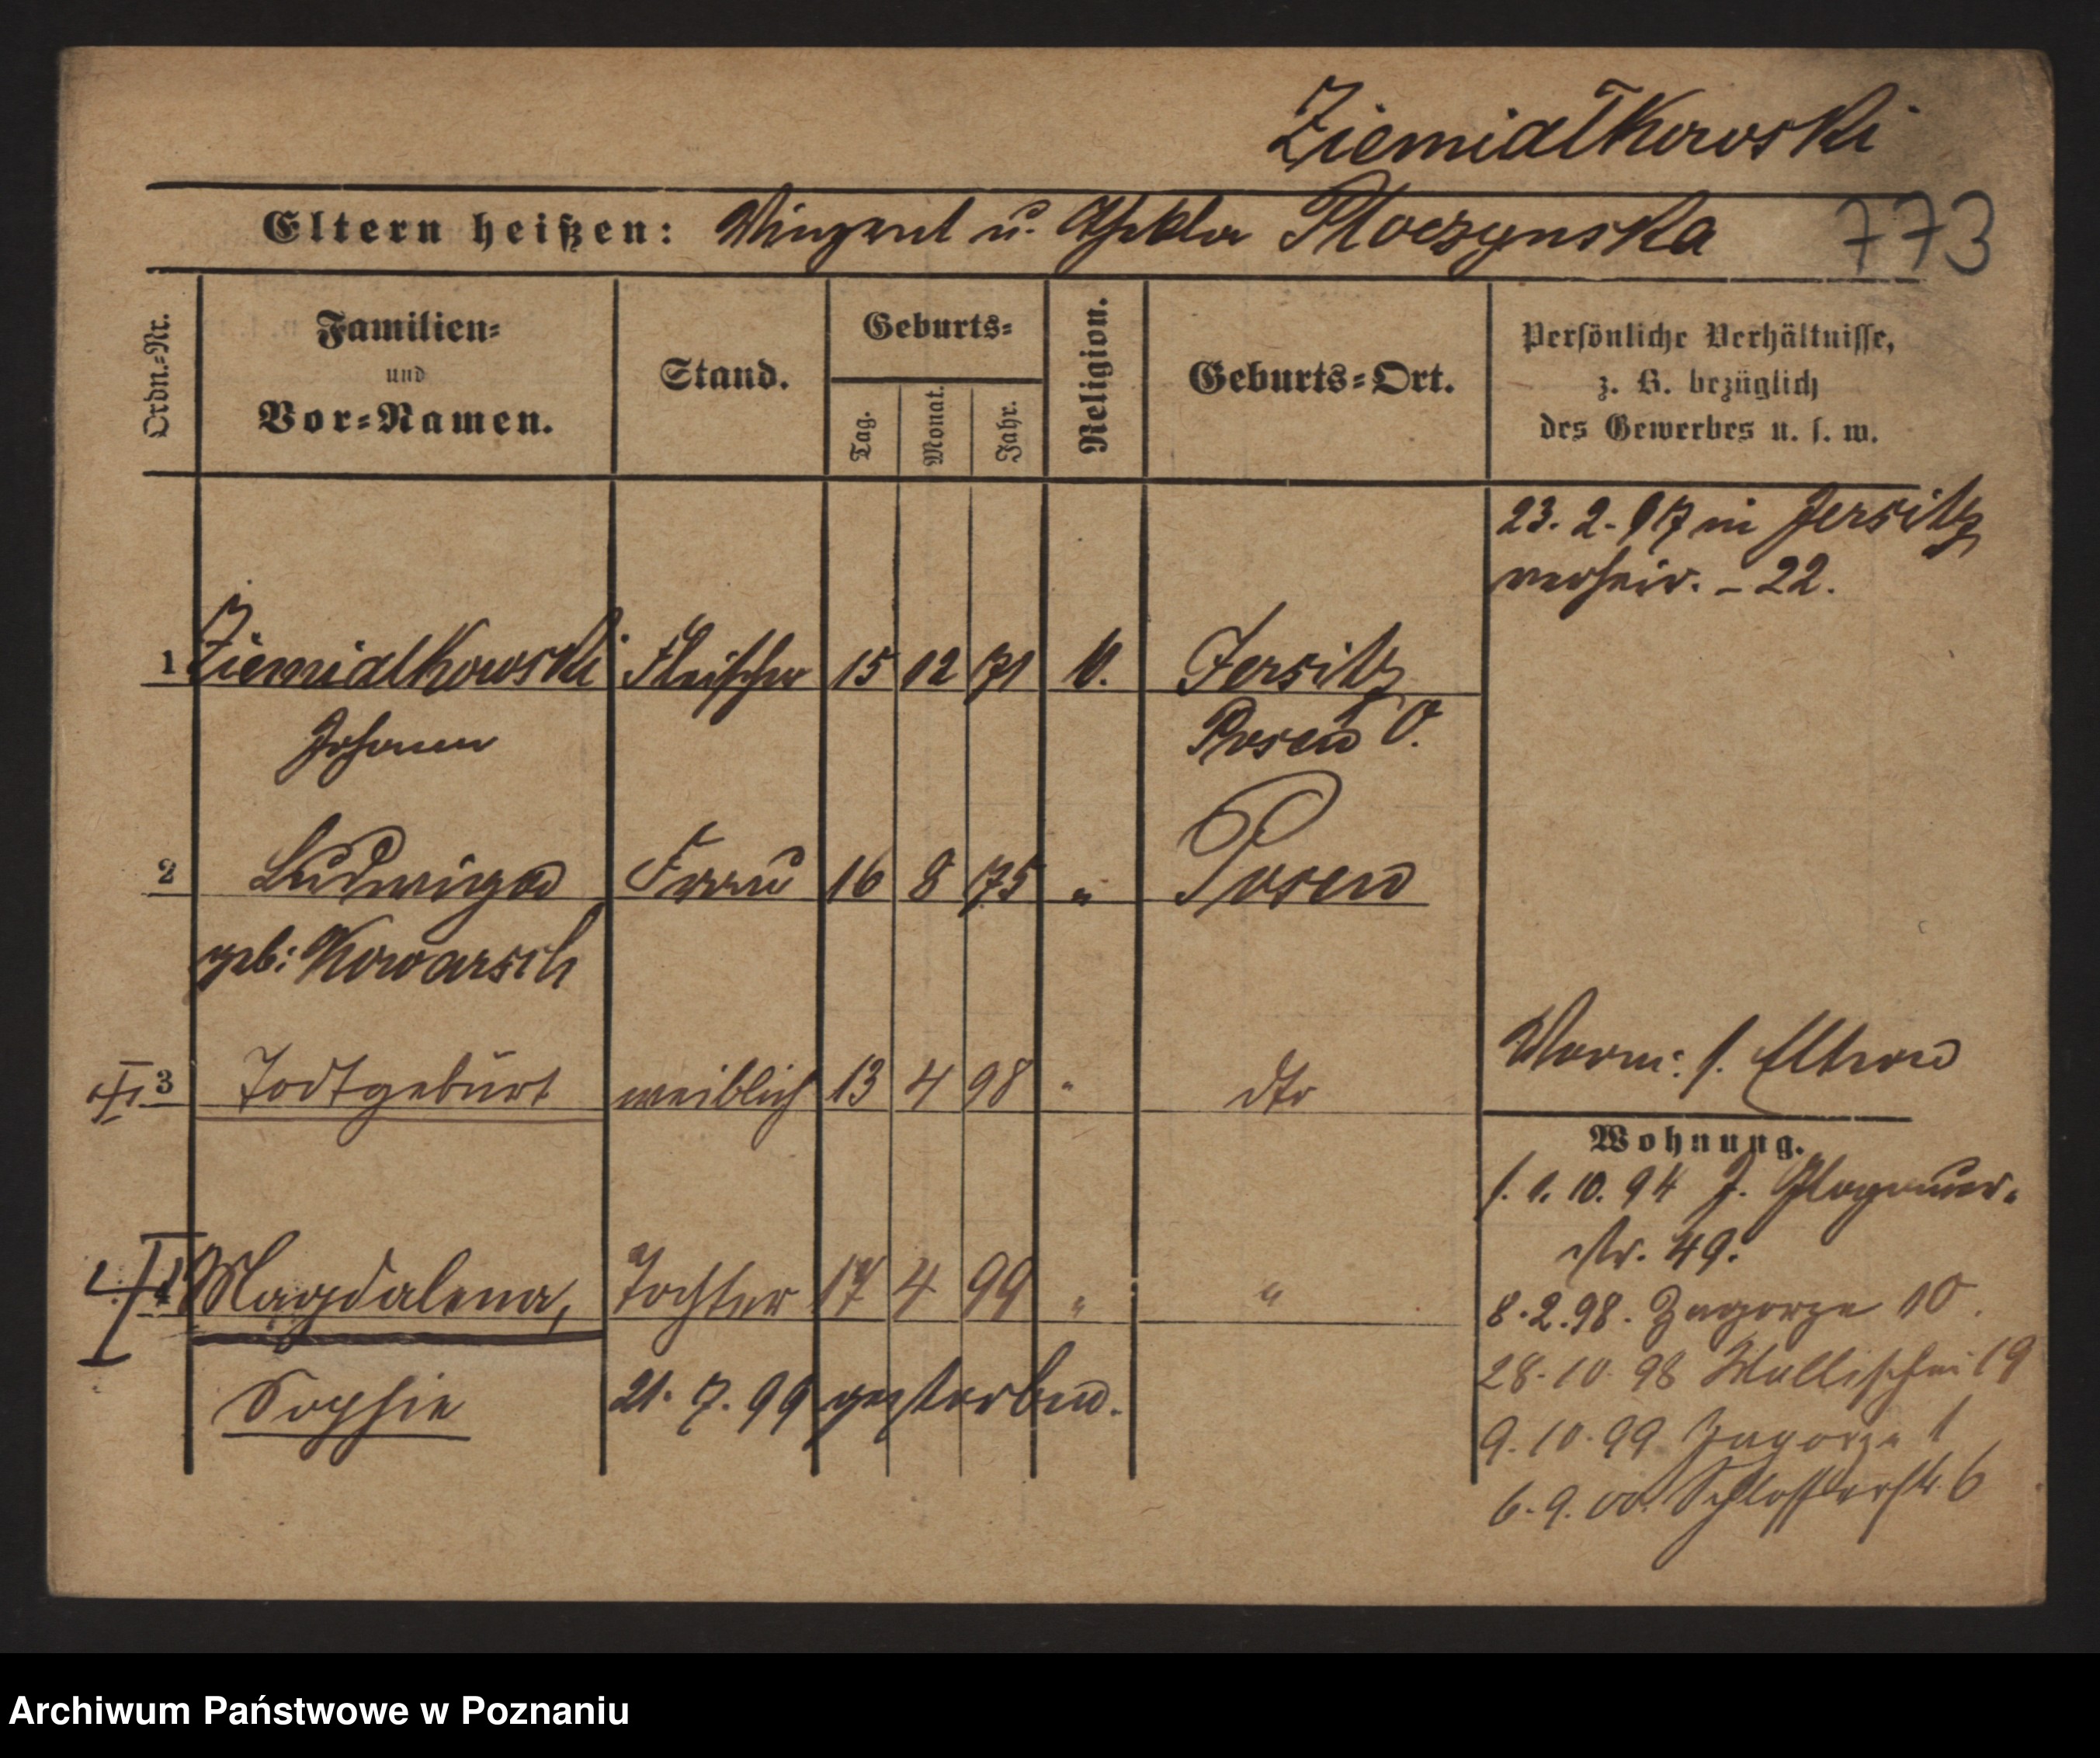 Ziemiałkowski
Eltern heißen: Vinzent u. Thekla Ploczynska 773
Ordn.-Nr.
Familien-
und
Vor-Namen.
Stand.
Geburts-
Tag.
Monat.
Jahr.
Religion.
Geburts-Ort.
Persönliche Verhältnisse,
z. B. bezüglich
des Gewerbes u. s. w.
23. 2. 97 in Jersitz
verheir. - 22.
1 Ziemialkowski Fleischer 15 12 71 k. Jersitz
Johann Posen O.
2 Ludwiga Frau 16 8 75 " Posen
geb: Kowarsch
3 Todtgeburt weiblich 13 4 98 " dto
Vorm: s. Eltern
Wohnung.
s. 1. 10. 94 J. Glogauer-
str. 49.
4 Magdalena, Tochter 17 4 99 " "
8. 2. 98. Zagorze 10.
Sophie 21. 7. 99 gestorben.
28. 10 98 Wallischei 19
9. 10. 99 Zagorze 1
6. 9. 00. Schlosserstr. 6
Archiwum Państwowe w Poznaniu